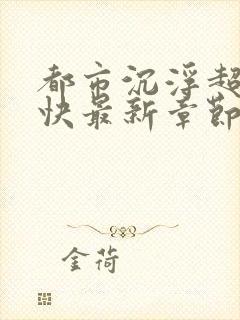 都市沉浮超
快最新章節
金荷